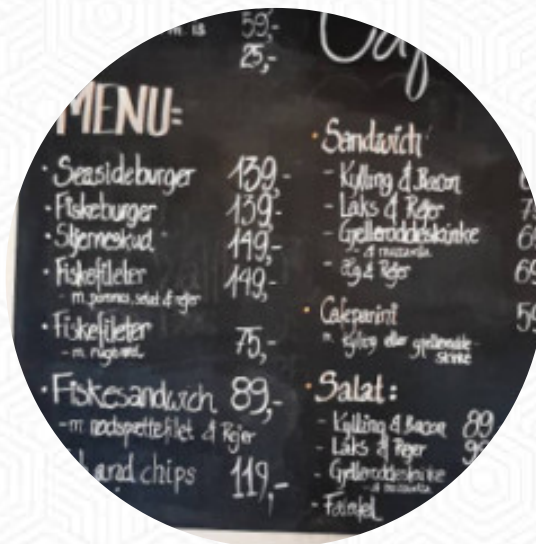 m. is 59,-
25,-
Caf
MENU:
· Seasideburger 139,-
· Fiskeburger 139,-
· Stjerneskud 149,-
· Fiskefileter 149,-
- m. pommes, salat & rejer
· Fiskefileter 75,-
- m. rugbrød
· Fiskesandwich 89,-
- m rødspættefilet & Rejer
and chips 119,-
· Sandwich
- Kylling & Bacon
- Laks & Rejer
- Grilleraddeskinke
- & mozzarella
- Æg & Rejer 69
· Cafepanini 59
m. kylling eller
skinke
· Salat:
- Kylling & Bacon 89
- Laks & Rejer
- & mozzarella
- Falafel